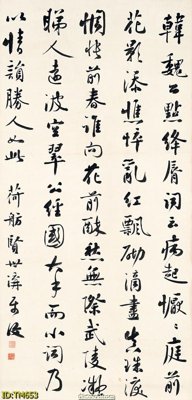 韓魏公點絳脣詞云病起懨〻庭前
花影添憔悴亂紅飄砌滴盡真珠淚
惆悵前春誰向花前醉愁無際武陵凝
睇人遠波空翠公經國大手而小詞乃
以情韻勝人如此 荷舫賢世講
ID:TM653